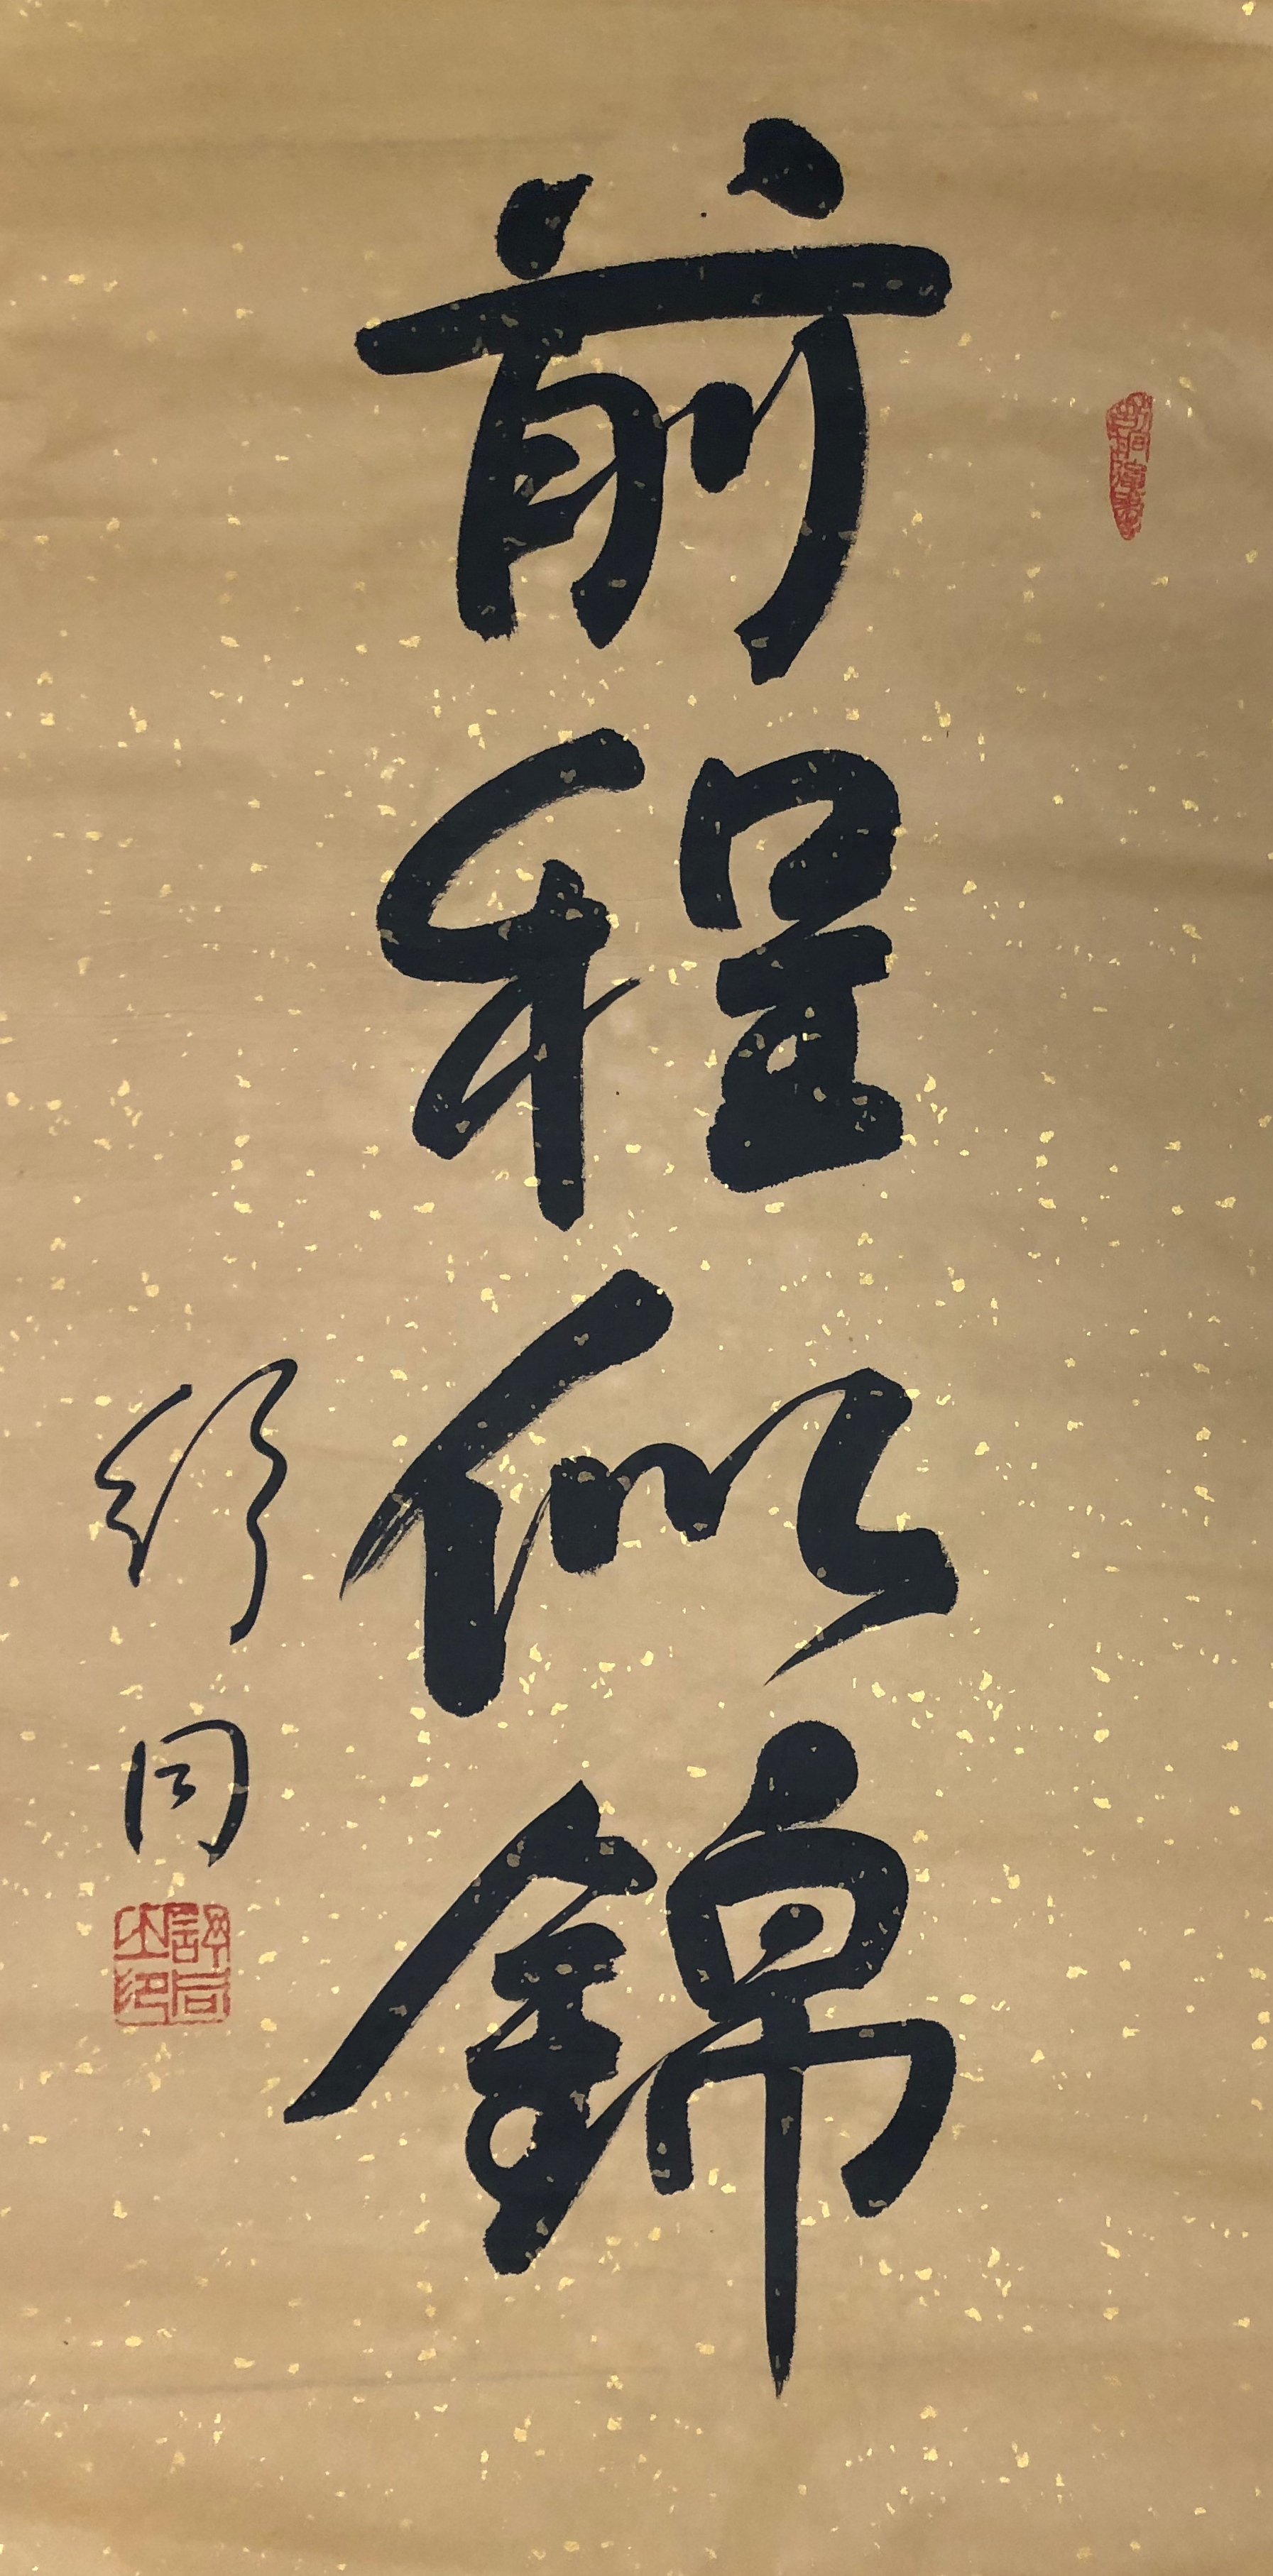 前程似錦
舒同